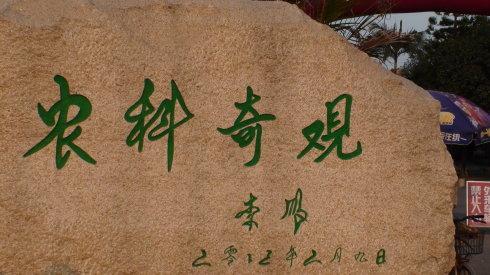 农科奇观
李鹏
二零 年二月九日
禁止入